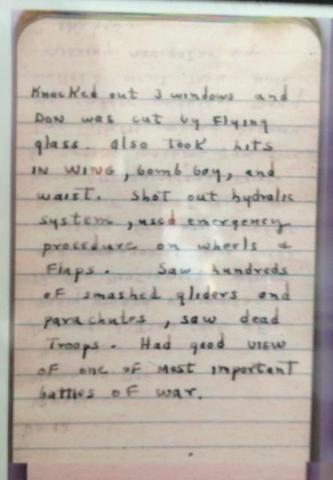 Knocked out 3 windows and
Don was cut by Flying
glass. also took hits
in wing, bomb bay, and
waist. Shot out hydralic
system, used emergency
procedure on wheels &
Flaps. Saw hundreds
of smashed gliders and
parachutes, saw dead
Troops. Had good view
of one of most important
battles of war.